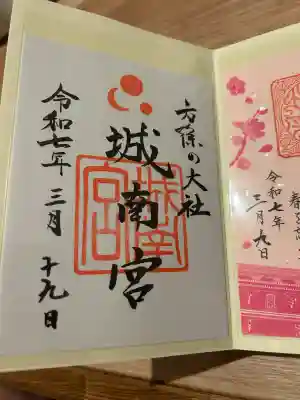 方除の大社
城南宮
令和七年 三月 十九日
城南宮
令和七年
三月九日